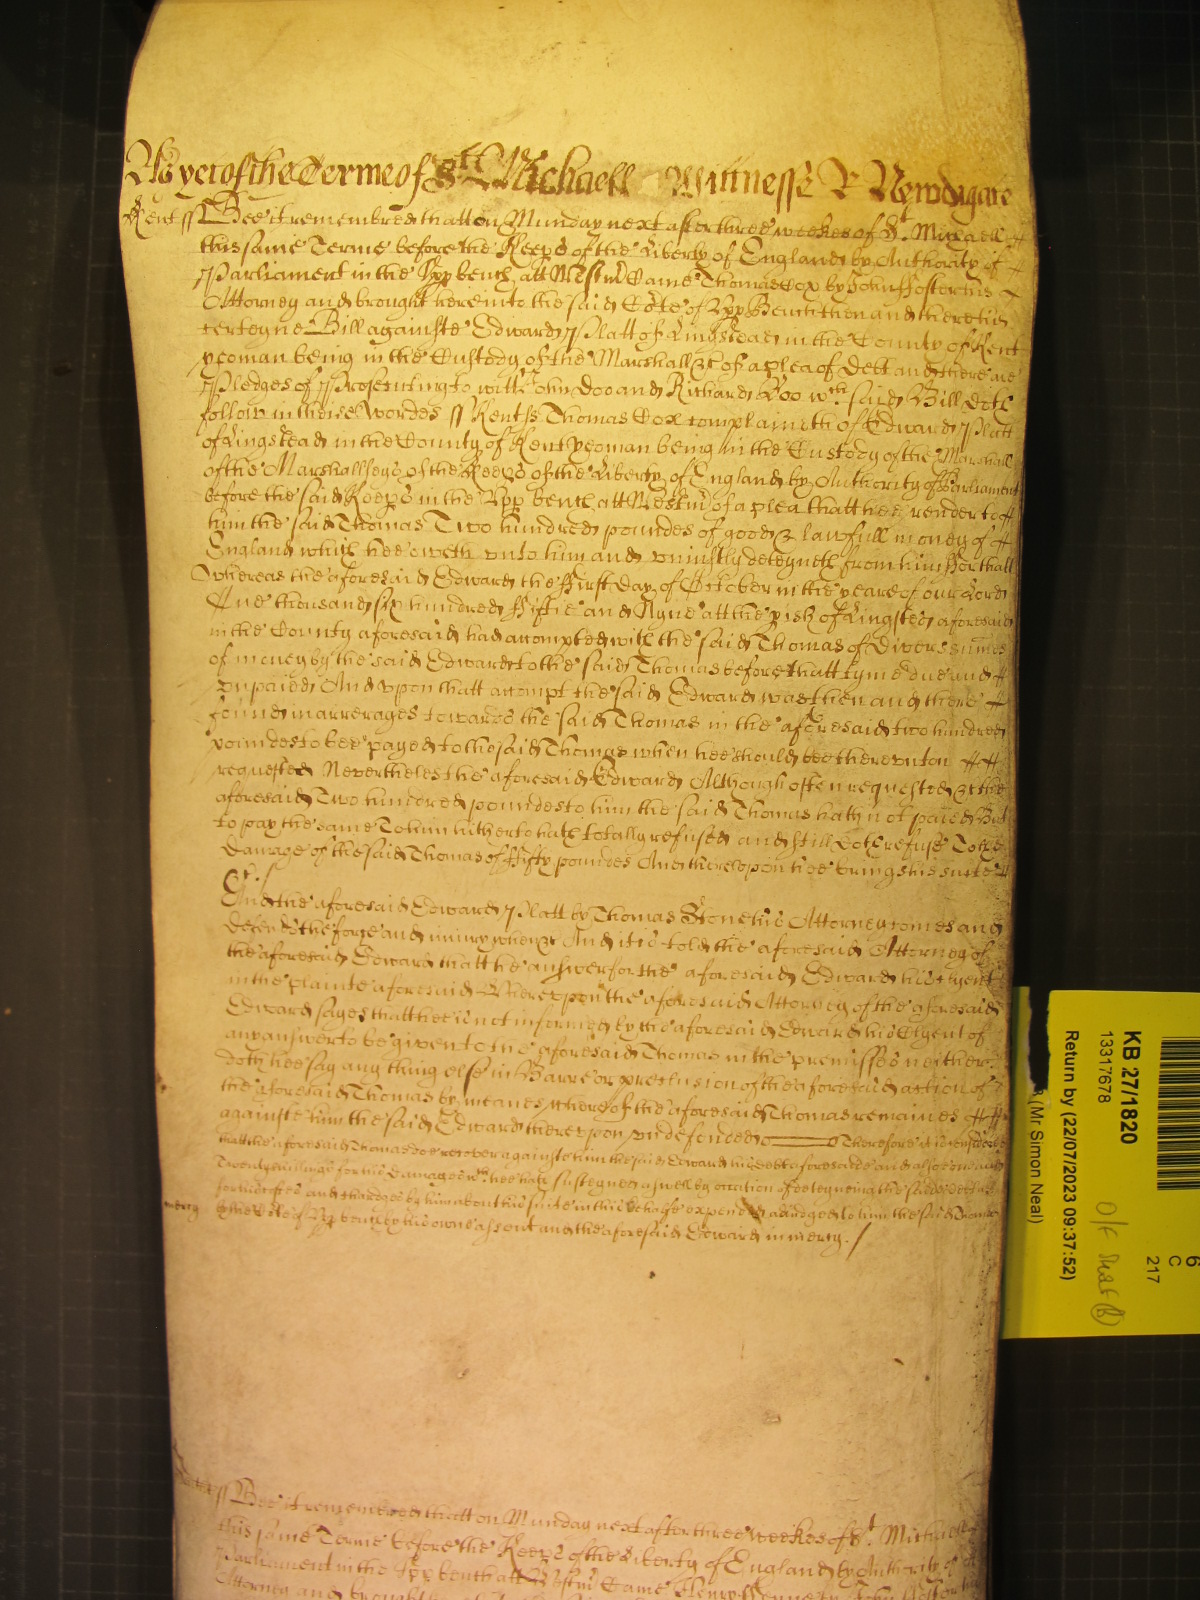 As yet of the Terme of St Michaell Wittnesse R Newdigate
Kent ss Bee it remembred that on Munday next after three weekes of St. Michaell
this same Terme before the Keeps of the Liberty of England by Authority of
Parliament in the Upp bench att Westm Came Thomas Cox by John Foster his
Attorney and brought here into the said Cote of Upp Bench then and there his
certeyne Bill againste Edward Platt of Lingstead in the County of Kent
yeoman being in the Custody of the Marshall &c of a plea of Debt and there are
Pledges of Prosecuting to witt John Doo and Richard Roo wch said Bill doth
follow in theise Wordes ss Kent ss Thomas Cox complaineth of Edward Platt
of Lingstead in the County of Kent yeoman being in the Custody of the Marshall
of the Marshallsey of the Keeps of the Liberty of England by Authority of Parliament
before the said Keeps in the Upp bench att Westm of a plea that hee render to
him the said Thomas Two hundred poundes of good & lawfull money of
England which hee oweth unto him and uniustly deteyneth from him For that
whereas the aforesaid Edward the First Day of October in the yeare of our Lord
One thousand six hundred Fiftie and Nyne att the pish of Lingsted aforesaid
in the County aforesaid had accompted with the said Thomas of Divers summes
of money by the said Edward to the said Thomas before that tyme due and
unpaied And upon that accompt the said Edward was then and there
found in arrerages towards the said Thomas in the aforesaid two hundred
poundes to bee payed to the said Thomas when hee should bee thereunto
requested Neverthelesse the aforesaid Edward Although often requested &c the
aforesaid Two hundred poundes to him the said Thomas hath not paied But
to pay the same To him hitherto hath totally refused and still doth refuse To the
Damage of the said Thomas of Fifty poundes And thereupon hee brings his suite
&c.
And the aforesaid Edward Platt by Thomas Stone his Attorney comes and
defends the force and iniury when &c And it is told the aforesaid Attorney of
the aforesaid Edward that he answer for the aforesaid Edward his Clyent
in the plainte aforesaid Whereupon the aforesaid Attorney of the aforesaid
Edward sayes that hee is not informed by the aforesaid Edward his Clyent of
any answer to be given to the aforesaid Thomas in the premisses neither
doth hee say any thing else in Barre or preclusion of the aforesaid action of
the aforesaid Thomas by meanes whereof the aforesaid Thomas remaines
againste him the said Edward thereupon undefended Therefore it is considered
that the aforesaid Thomas doe recover againste him the said Edward his debt aforesaide and alsoe
Twenty shillings for his Damages wch hee hath susteyned aswell by occation of deteyneing the said debt
for his costes and chardges by him about his suite in this behalfe expended adiudged to him the said Thomas
mercy by the Cote of Upp bench by his owne assent and the aforesaid Edward in mercy.
ss Bee it remembred that on Munday next after three weekes of St Michaell
this same Terme before the Keeps of the Liberty of England by Authority of
Parliament in the Upp bench att Westm Came Henry
Attorney and brought
KB 27/1820
13317678
Return by (22/07/2023 09:37:52)
(Mr Simon Neal)
6
C
217